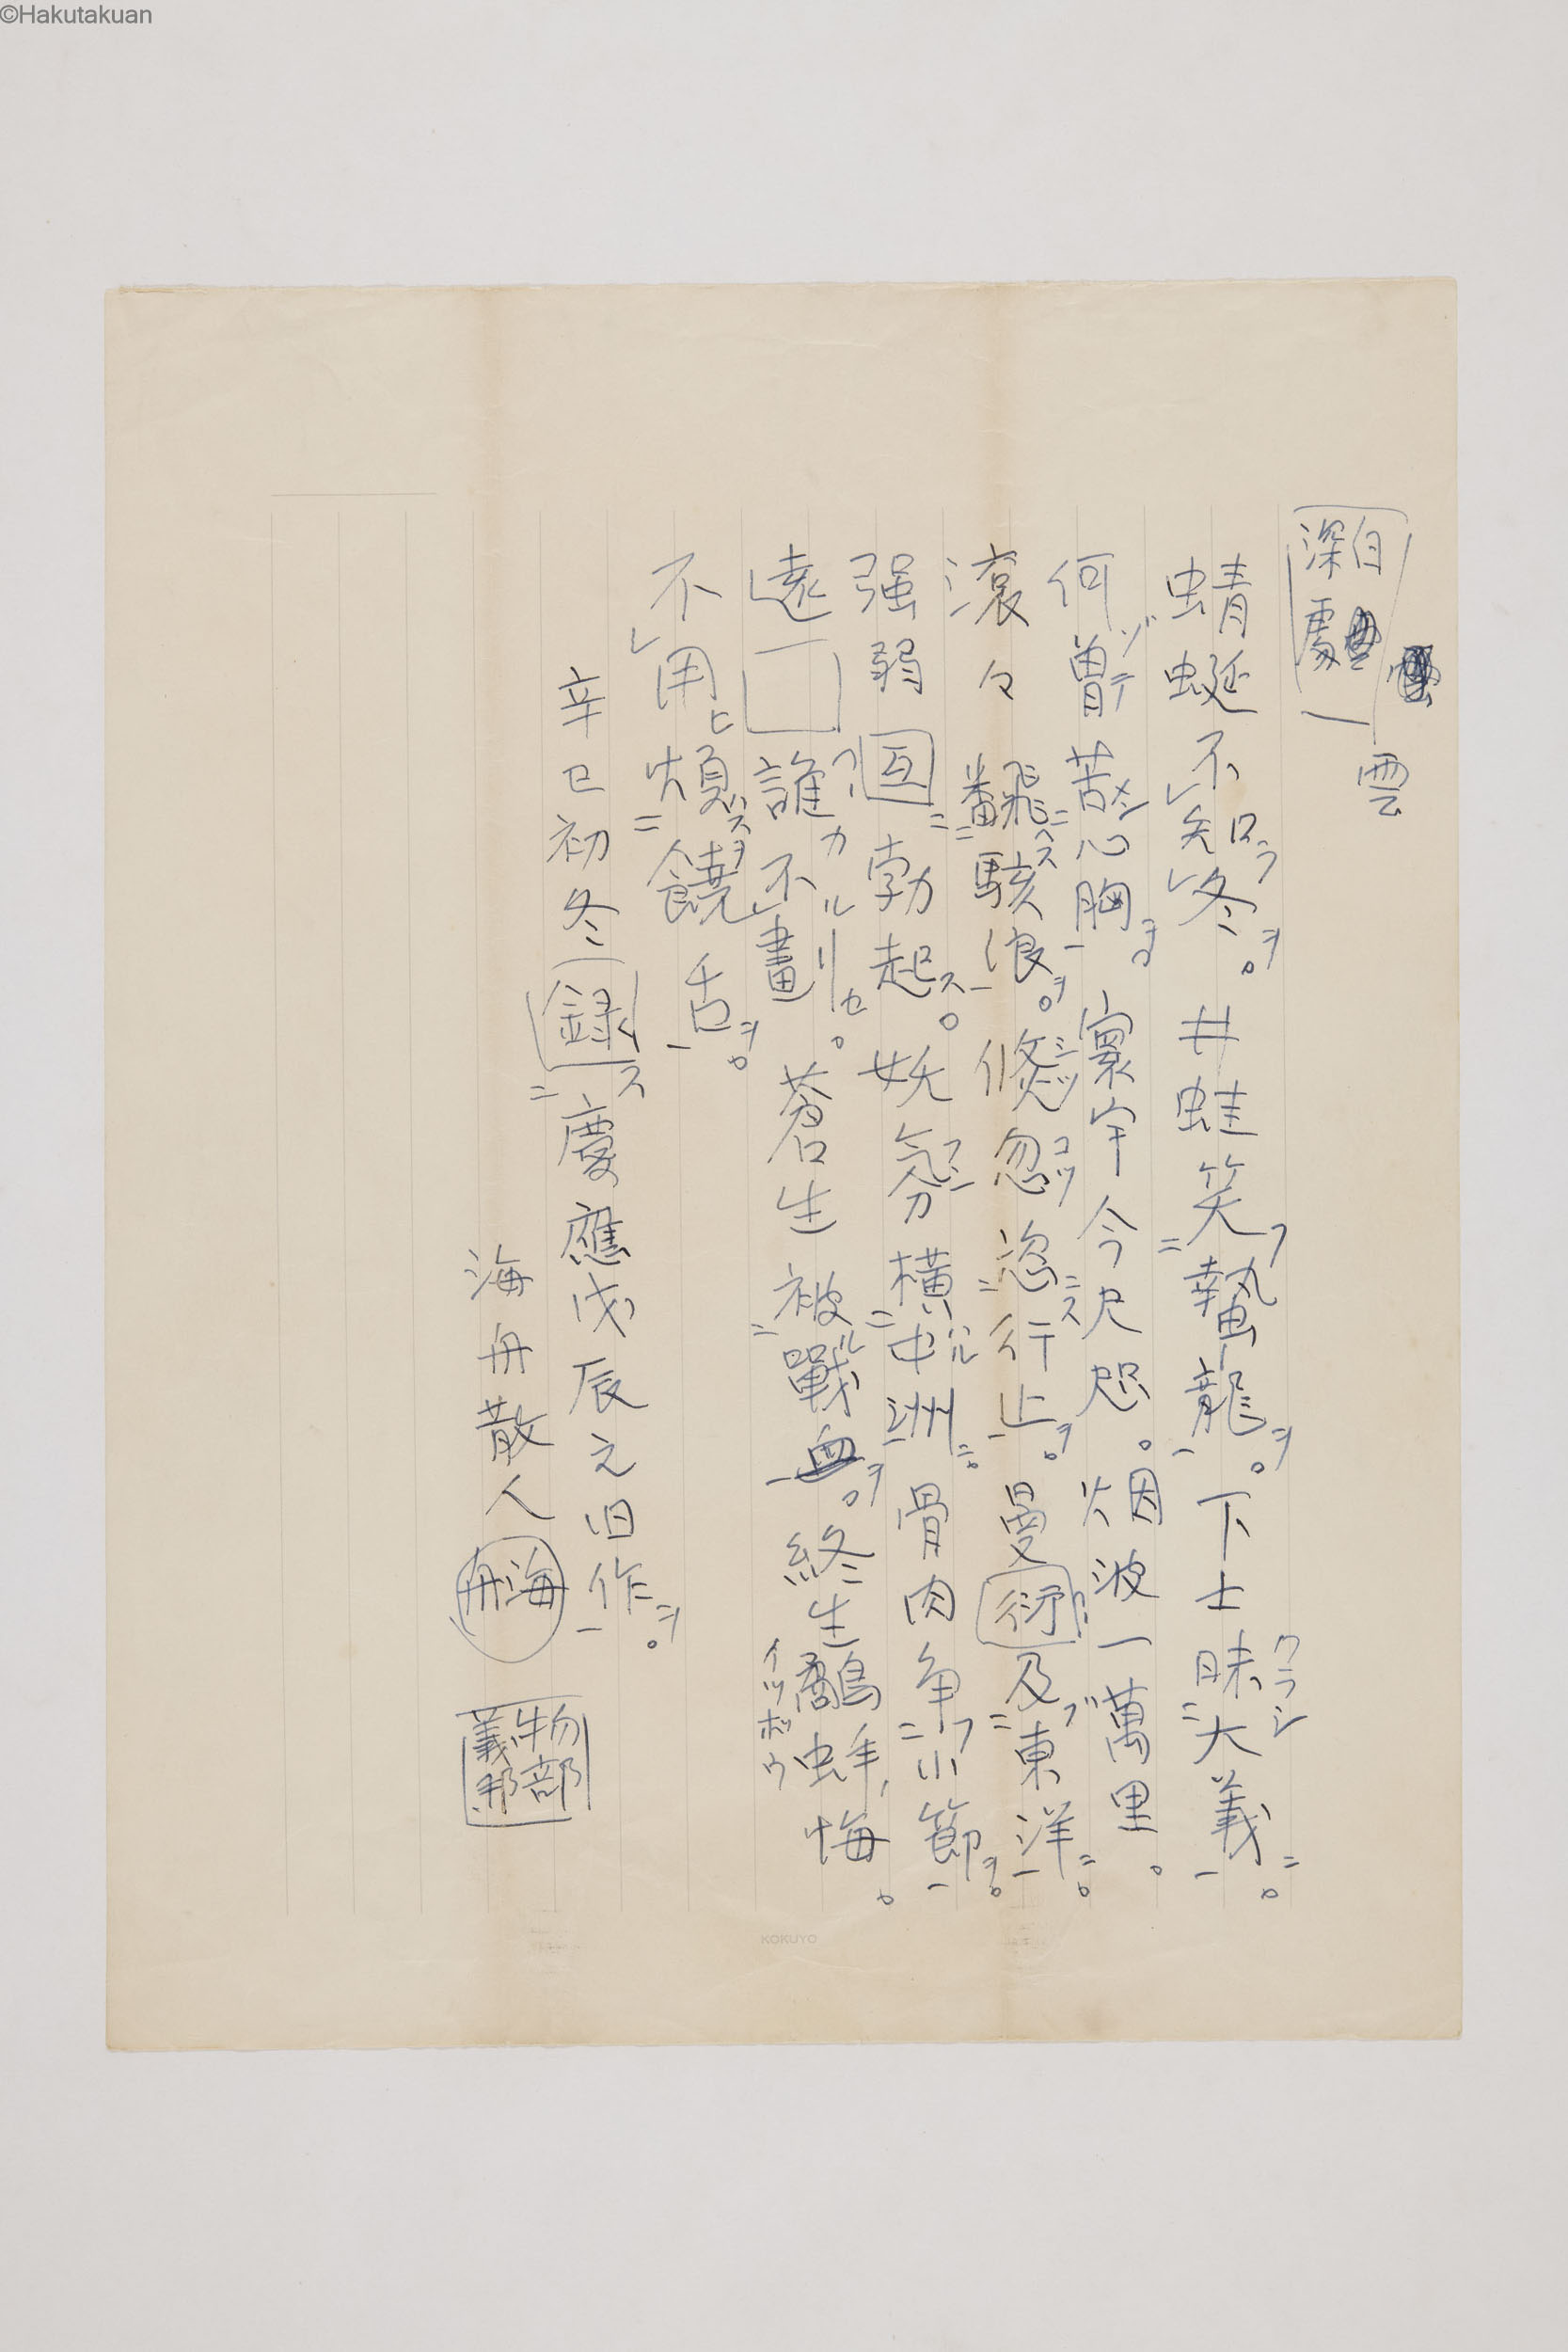 ©Hakutakuan
白雲
深處
蜻蜓不知冬。井蛙笑蟄龍。下士昧大義。
何曽苦心胸。寰宇今咫尺。烟波一萬里。
滾々飜駭浪。悠忽恣行止。曼衍及東洋。
强弱互勃起。妖氛横中洲。骨肉争小節。
遠 誰不畫。蒼生被戰血。終生鷸蚌悔。
不用煩饒舌。
辛巳初冬録慶應戊辰之旧作。
海舟散人 海舟 物部義邦
KOKUYO